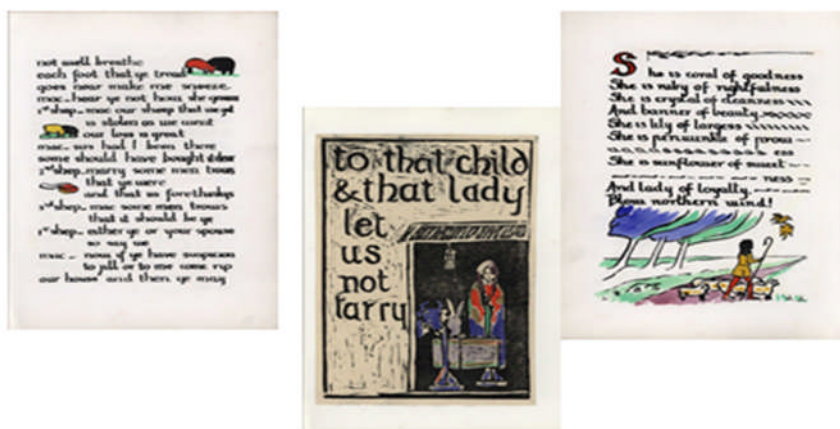 not well breathe
each foot that ye tread
goes near make me sneeze
mac – hear ye not how she groans
1st shep – mac our sheep that we get
is stolen as we went
our loss is great
mac – sirs had I been there
some should have bought it dear
1st shep – marry some men trows
that ye were
and that us forethinks
shep – mac some men trows
that it should be ye
shep – either ye or your spouse
so say we
mac – now if ye have suspicion
to jill or to me come rip
our house and then ye may
to that child
& that lady
let
us
not
tarry
She is coral of goodness
She is ruby of rightfulness
She is crystal of cleanness
And banner of beauty
She is lily of largess
She is periwinkle of prow –
ess
She is sunflower of sweet –
ness
And lady of loyalty
Blow northern wind!